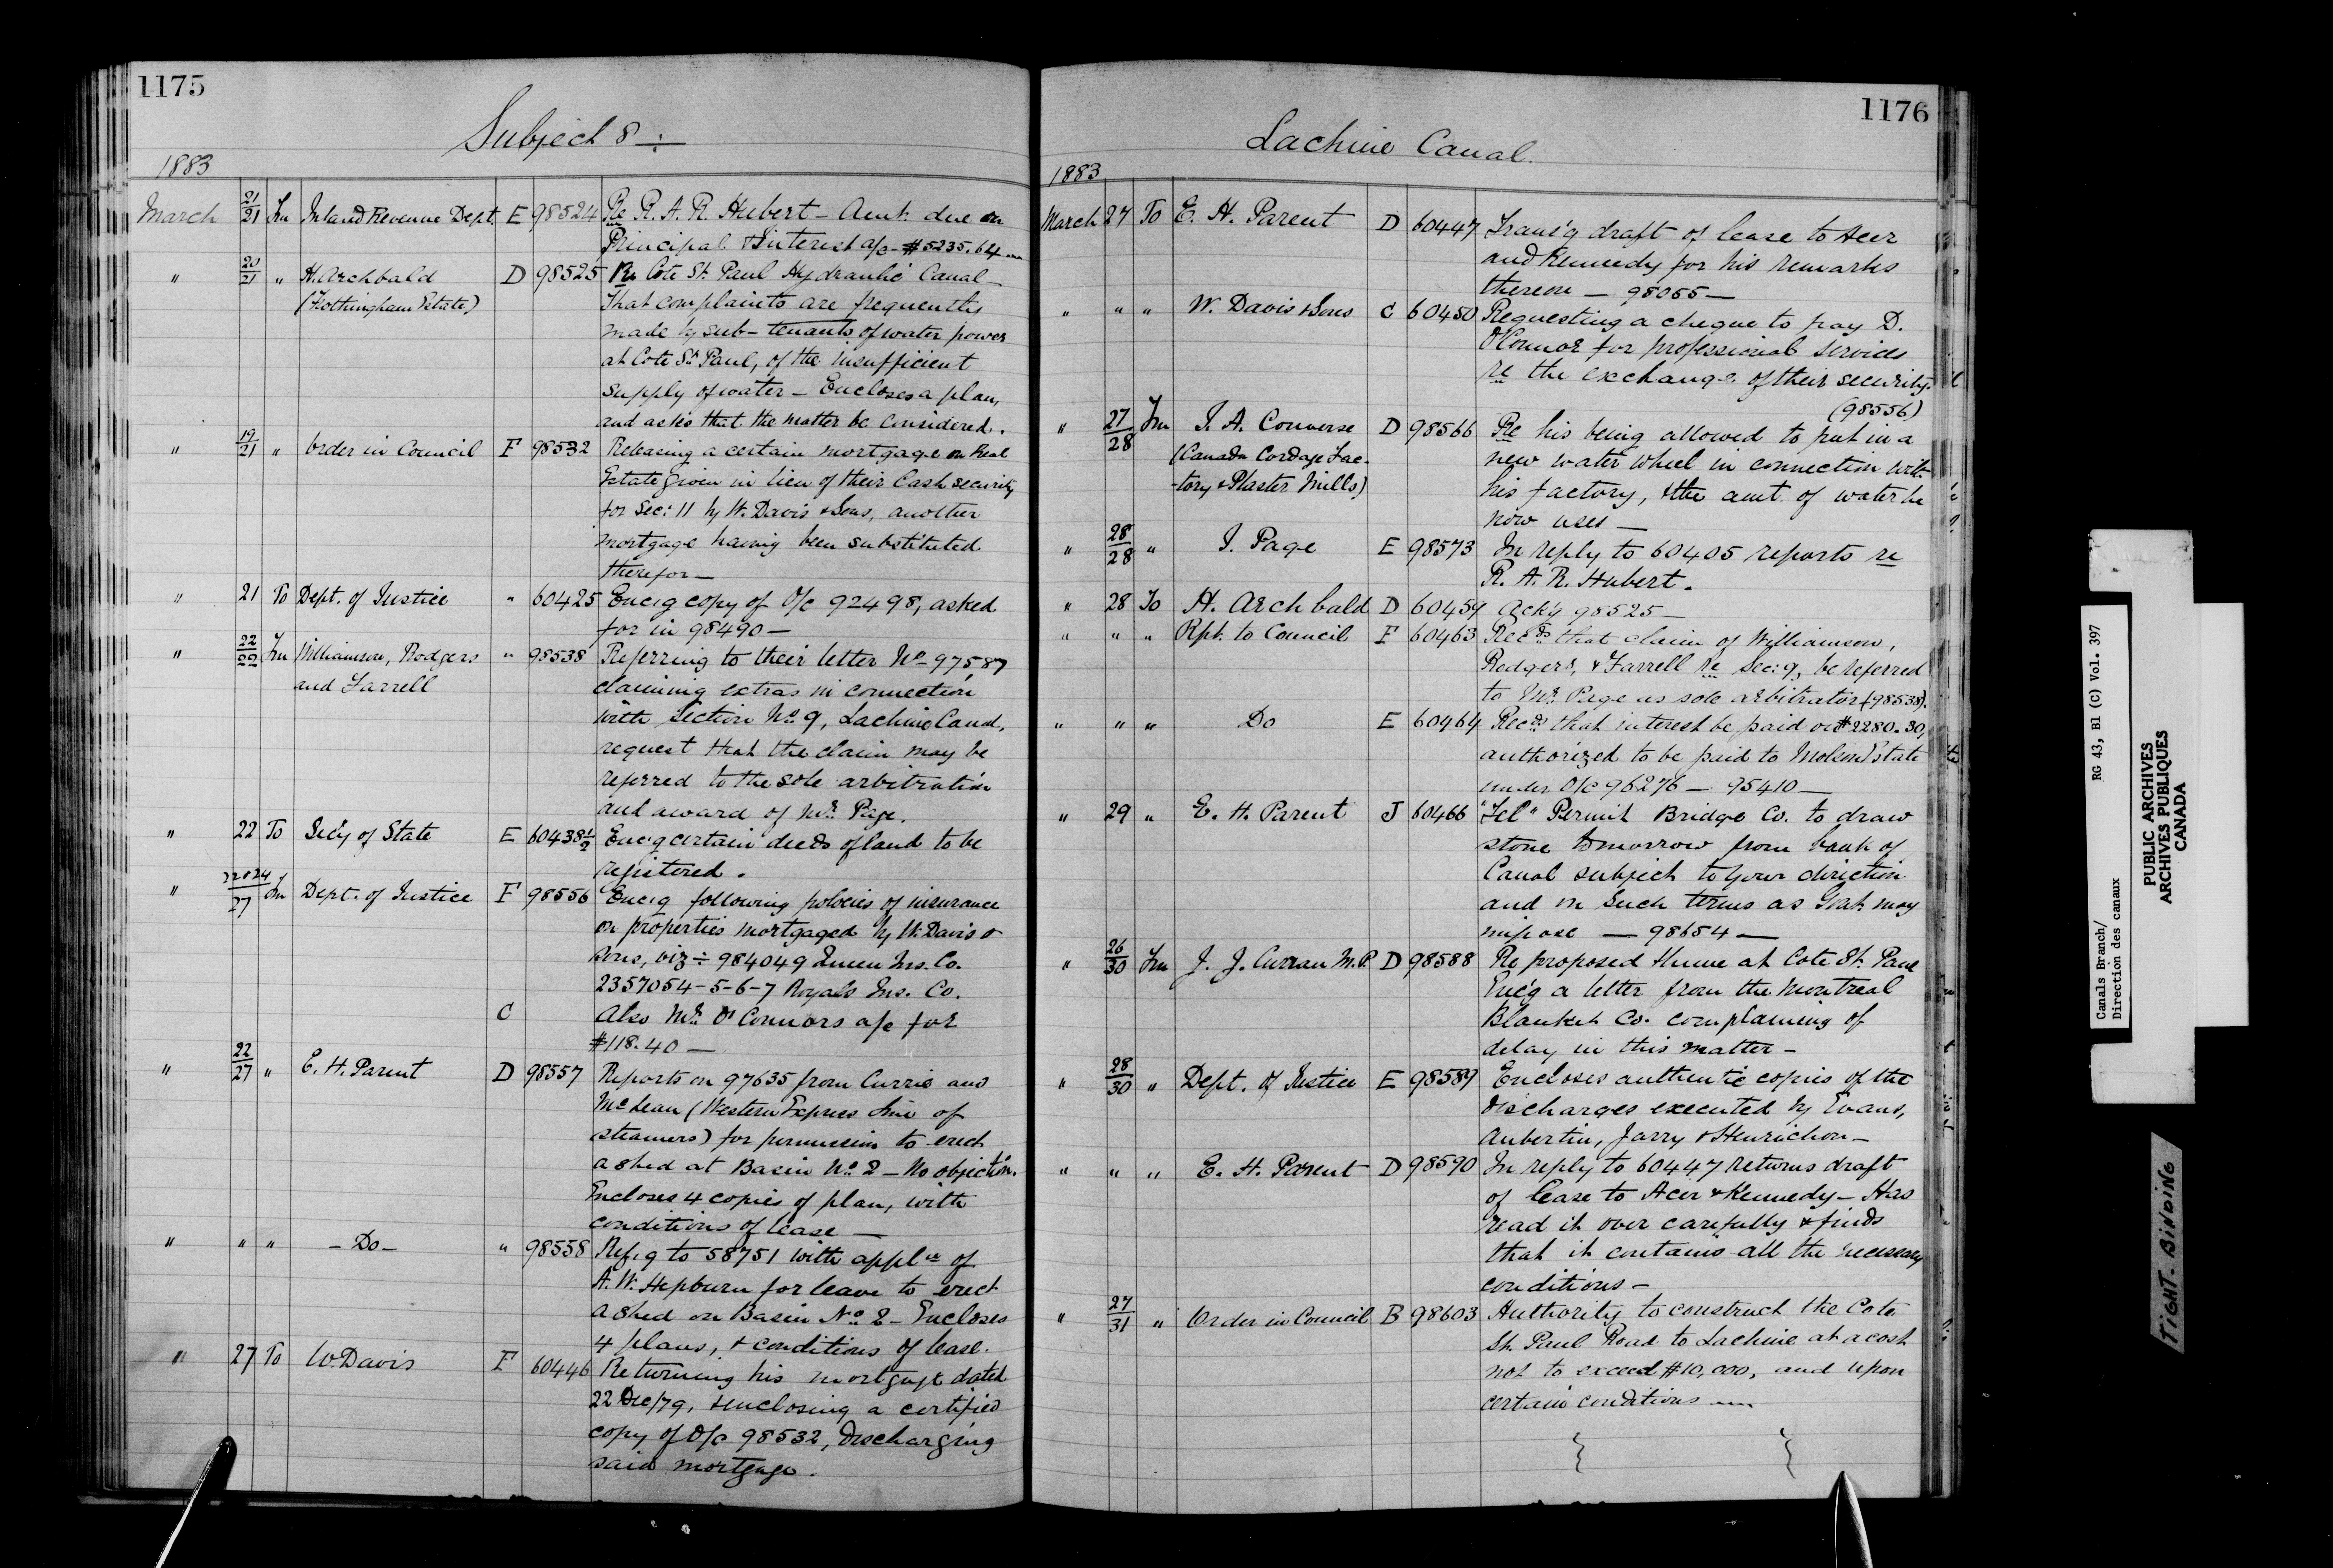 1175
Subject 8 ÷
1883
March 21/21 Fm Inland Revenue Dept. E 98524 Re R. A. R. Hubert - Amt. due on
Principal & Interest a/c - $5235.64
" 20/21 " H. Archbald D 98525 Re Cote St. Paul Hydraulic Canal -
(Fothingham Estate) That complaints are frequently
made by sub-tenants of water power
at Cote St. Paul, of the insufficient
supply of water - Encloses a plan,
and asks that the matter be considered.
" 19/21 " Order in Council F 98532 Releasing a certain mortgage on Real
Estate given in lieu of their Cash security
for Sec: 11 by W. Davis & Sons, another
mortgage having been substituted
therefor -
" 21 To Dept. of Justice " 60425 Enc'g copy of O/c 92498, asked
for in 98490 -
" 22/22 Fm Williamson, Rodgers " 98538 Referring to their letter No 97587
and Farrell claiming extras in connection
with Section No. 9, Lachine Canal,
request that the claim may be
referred to the sole arbitration
and award of Mr. Page.
" 22 To Sec'y of State E 60438½ Enc'g certain deeds of land to be
registered.
" 22&24/27 Fm Dept. of Justice F 98556 Enc'g following policies of insurance
on properties mortgaged by W. Davis &
Sons, viz ÷ 984049 Queen Ins. Co.
2357054-5-6-7 Royals Ins. Co.
C Also Mr. O'Connors a/c for
$118.40 -
" 22/27 " E. H. Parent D 98557 Reports on 97635 from Currie and
McLean (Western Express Line of
steamers) for permission to erect
a shed at Basin No. 2 - No objection.
Encloses 4 copies of plan, with
conditions of lease -
" " " - Do - " 98558 Ref'g to 58751 with appln of
A. W. Hepburn for leave to erect
a shed on Basin No. 2 - Encloses
4 plans, & conditions of lease.
" 27 To W. Davis F 60446 Returning his mortgage dated
22 Dec/79, & enclosing a certified
copy of O/c 98532, discharging
said mortgage.
1176
Lachine Canal.
1883
March 27 To E. H. Parent D 60447 Trans'g draft of lease to Acer
and Kennedy for his remarks
thereon - 98055 -
" " " W. Davis & Sons C 60450 Requesting a cheque to pay D.
O'Connor for professional services
re the exchange of their security.
(98556)
" 27/28 Fm J. A. Converse D 98566 Re his being allowed to put in a
(Canada Cordage Fac- new water wheel in connection with
-tory & Plaster Mills) his factory, & the amt. of water he
now uses -
" 28/28 " J. Page E 98573 In reply to 60405 reports re
R. A. R. Hubert.
" 28 To H. Archbald D 60459 Ack'g 98525 -
" " " Rpt. to Council F 60463 Recds that claim of Williamson,
Rodgers, & Farrell re Sec: 9, be referred
to Mr. Page as sole arbitrator (98538).
" " " Do E 60464 Recds that interest be paid on $2280.30,
authorized to be paid to Molson Estate
under O/c 96276 - 95410 -
" 29 " E. H. Parent J 60466 "Tel" Permit Bridge Co. to draw
stone tomorrow from bank of
Canal subject to your direction
and on such terms as Govt. may
impose - 98654 -
" 26/30 Fm J. J. Curran M.P. D 98588 Re proposed flume at Cote St. Paul
Enc'g a letter from the Montreal
Blanket Co. complaining of
delay in this matter -
" 28/30 " Dept. of Justice E 98589 Encloses authentic copies of the
discharges executed by Evans,
Aubertin, Jarry & Henrichon -
" " " E. H. Parent D 98590 In reply to 60447 returns draft
of lease to Acer & Kennedy - Has
read it over carefully & finds
that it contains all the necessary
conditions -
" 27/31 " Order in Council B 98603 Authority to construct the Cote
St. Paul Road to Lachine at a cost
not to exceed $10,000, and upon
certain conditions
Canals Branch/ RG 43, B1 (C) Vol. 397
Direction des canaux
PUBLIC ARCHIVES
ARCHIVES PUBLIQUES
CANADA
TIGHT. BINDING